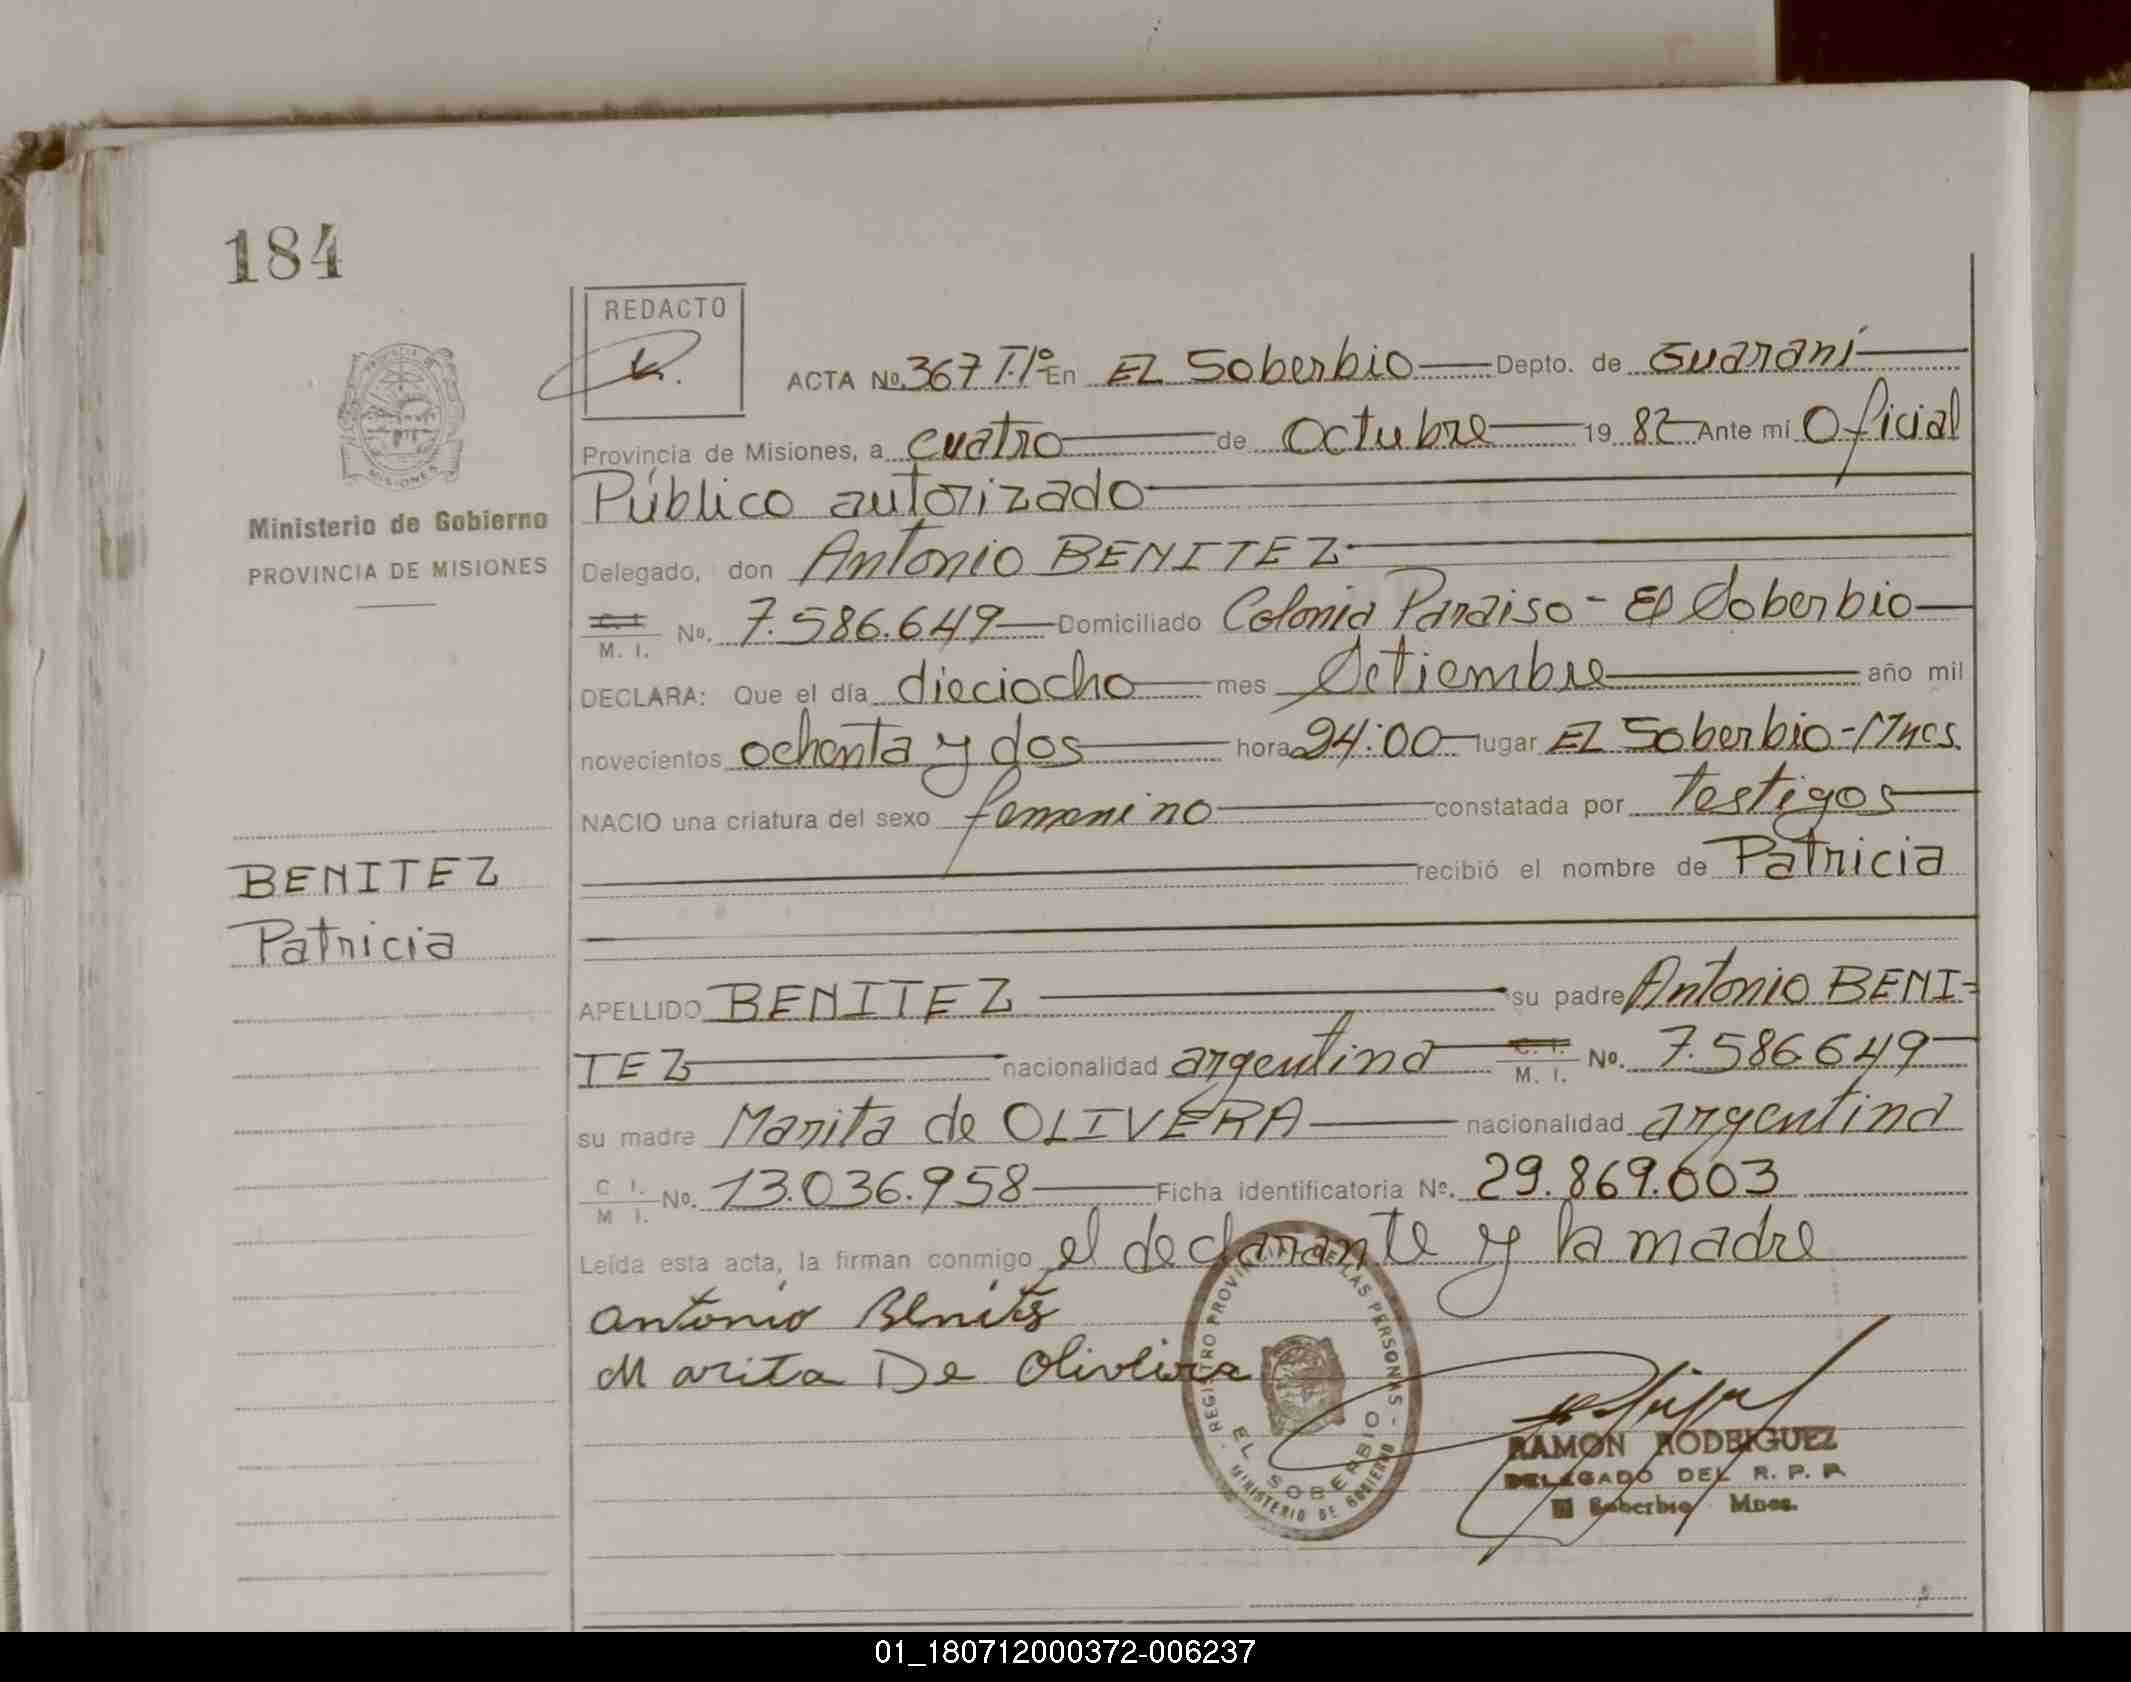 184
REDACTO
ACTA No. 367 T.1º En El Soberbio Depto. de Guaraní
Provincia de Misiones, a cuatro de Octubre 19 82 Ante mi Oficial
Público autorizado
Delegado, don Antonio BENITEZ
C. I.
M. I. No. 7.586.649 Domiciliado Colonia Paraiso - El Soberbio
DECLARA: Que el día dieciocho mes Setiembre año mil
novecientos ochenta y dos hora 24:00 lugar El Soberbio-Mnes.
NACIO una criatura del sexo femenino constatada por testigos
recibió el nombre de Patricia
APELLIDO BENITEZ su padre Antonio BENI-
TEZ nacionalidad argentina C. I.
M. I. No. 7.586.649
su madre Marita de OLIVERA nacionalidad argentina
C I.
M I. No. 13.036.958 Ficha identificatoria No. 29.869.003
Leída esta acta, la firman conmigo el declarante y la madre
Antonio Benites
Marita De Oliveira
REGISTRO PROVINCIAL DE LAS PERSONAS -
EL SOBERBIO
MINISTERIO DE GOBIERNO
RAMON RODRIGUEZ
DELEGADO DEL R. P. P.
El Soberbio Mnes.
PROVINCIA DE
MISIONES
Ministerio de Gobierno
PROVINCIA DE MISIONES
BENITEZ
Patricia
01_180712000372-006237